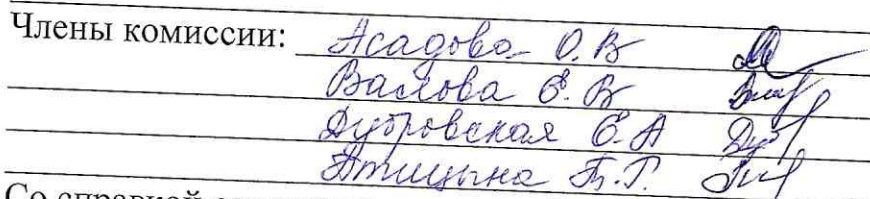 Члены комиссии: Асадова О.В
Ваялова Е.В
Дубровская Е.А
Птицына Т.Г.
Со справкой